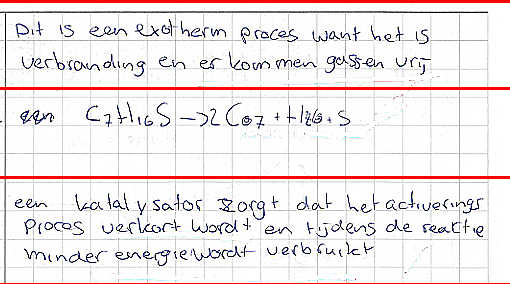 Dit is een exotherm proces want het is
verbranding en er kommen gassen vrij
een C7H16S → 2CO7 + H16 . S
een katalysator zorgt dat het activerings
proces verkort wordt en tijdens de reactie
minder energie wordt verbruikt